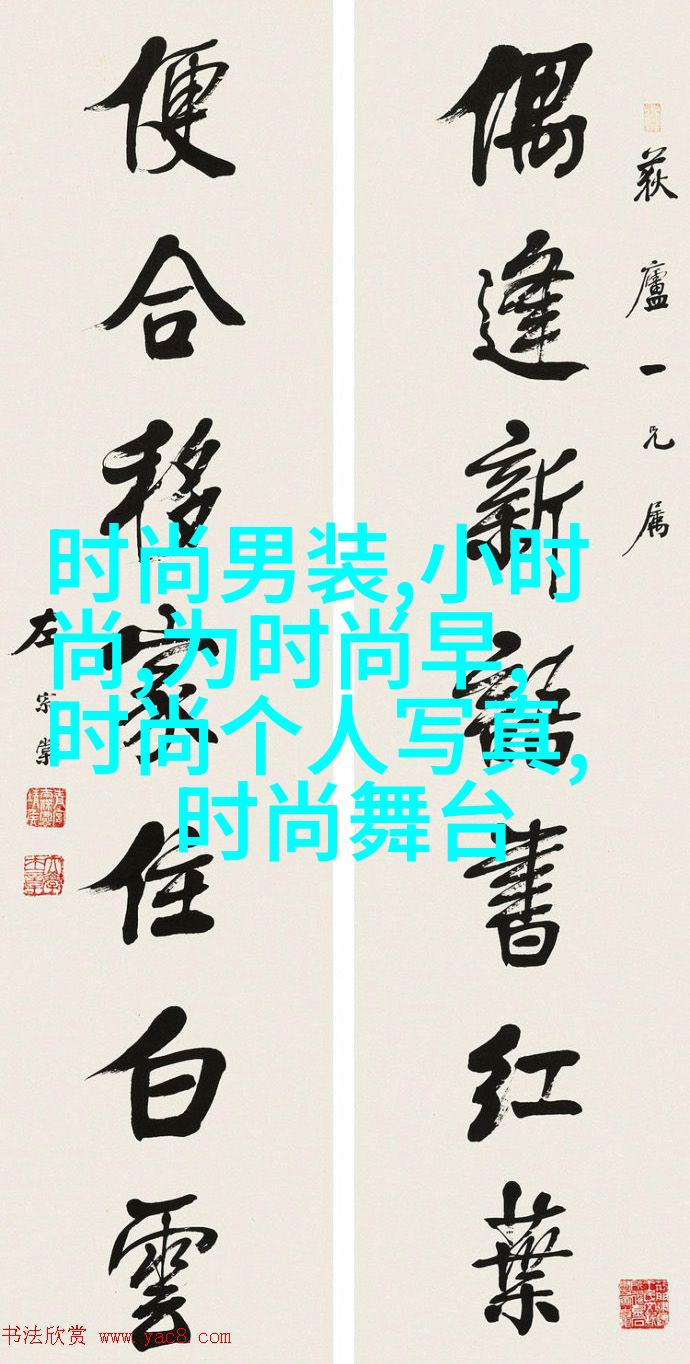 荻廬一兄屬
偶逢新語書紅葉
便合移家住白雲
左宗棠
时尚男装,小时
尚,为时尚早,
时尚个人写真,
时尚舞台
书法欣赏 www.yac8.com